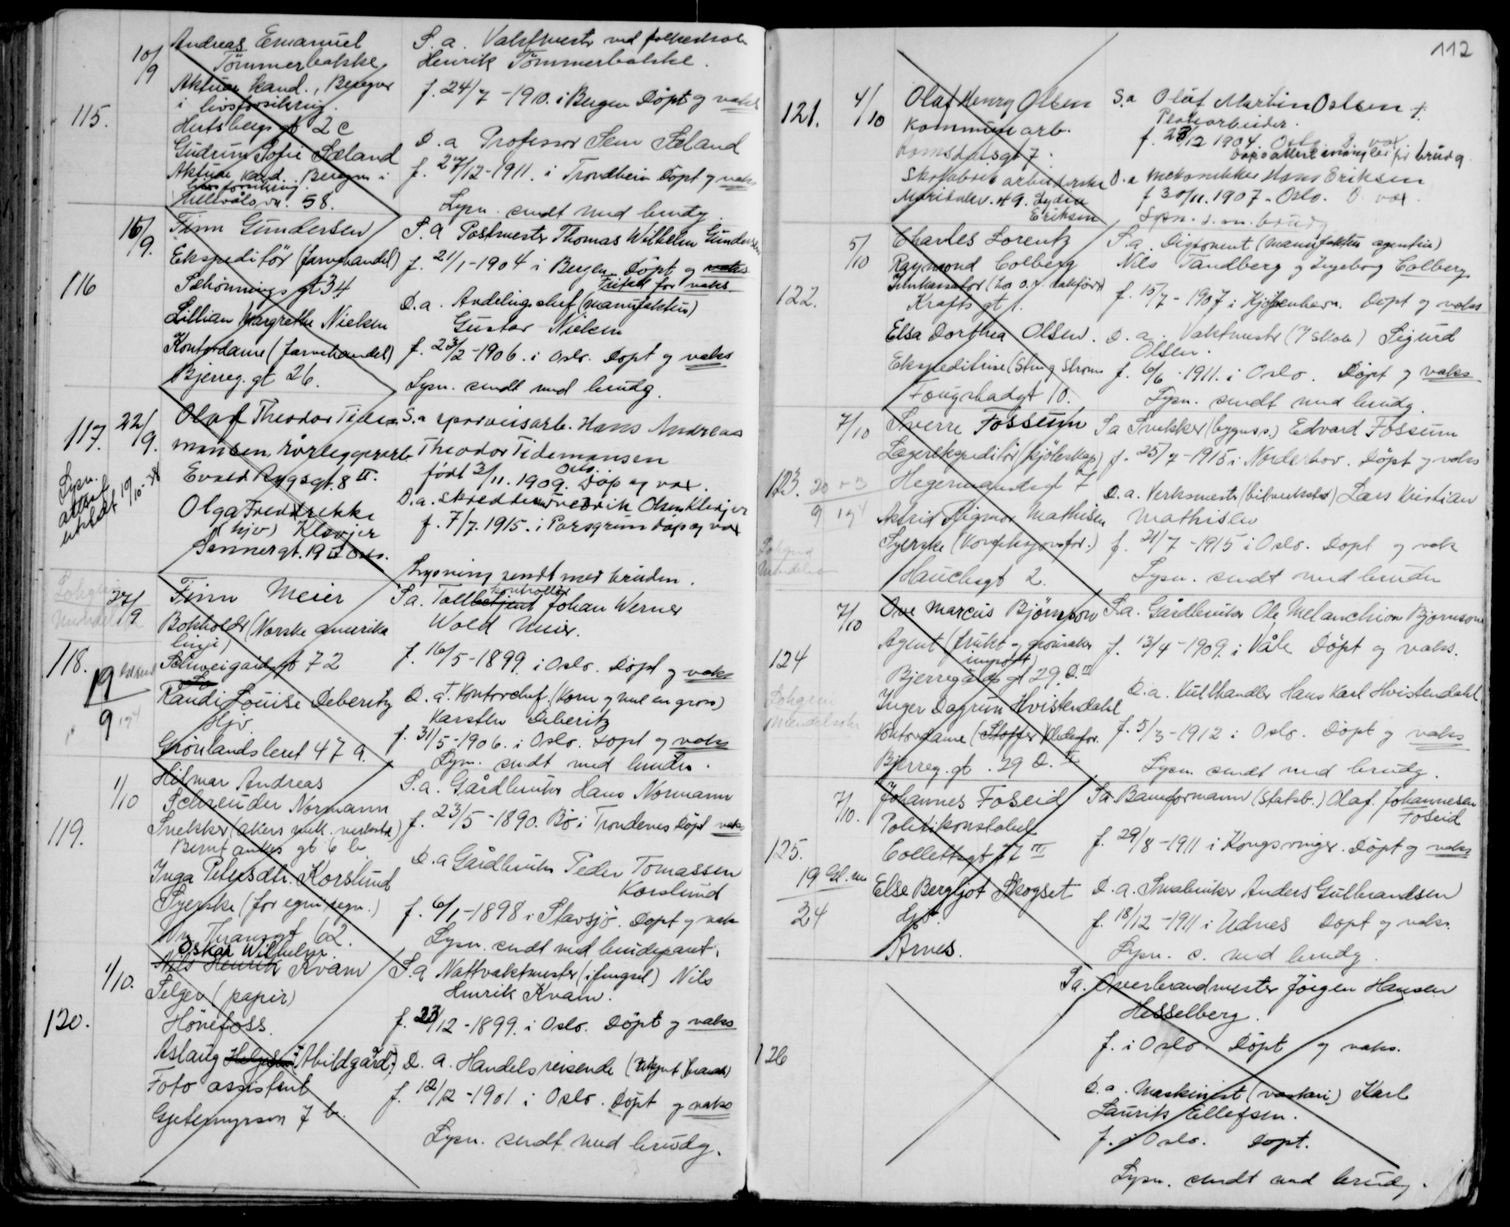 115.
10/9
Andreas Emanuel
Tømmerbakke
Aktuar kand., Beregner
i livsforsikring.
2 c
Gudrun Sofie Sæland
Aktuar kand. Beregner i
livsforsikring
58.
S. a. Vaktmester ved folkeskole
Henrik Tømmerbakke.
f. 24/7 - 1910. i Bergen Døpt og vaks
D. a Professor Sem Sæland
f. /12-1911. i Trondheim Døpt og vaks
Lysn. sendt med brudg.
116
15/9.
Finn Gundersen
Ekspeditör (farvehandel)
Schønnings gt 34
Lillian Margrethe Nielsen
Kontordame (farvehandel)
Bjerreg. gt 26.
S. a Postmester Thomas Wilhelm Gundersen
f. 21/1-1904 i Bergen Døpt og vaks
D. a. Avdelingschef (manufaktur)
Gustav Nielsen
f. 23/2-1906. i Oslo. Døpt og vaks
Lysn. sendt med brudg.
117.
22/9.
Lysn.
attest
utstedt 19/10
Olaf Theodor Tide
mansen, rörleggerarb
8 II.
Olga Fredrikke
hjv) Klevjer
Sannergt. 19 Oslo.
S. a sporveisarb. Hans Andreas
Theodor Tidemansen
født 3/11. 1909. Oslo. Døp og vax.
D. a. skredder Fredrik Olsen Klevjer
f. 7/7. 1915. i Porsgrunn døp og vax
Lysning sendt med bruden.
118.
27/9
Finn Meier
Bokholder (Norske Amerika
linje)
Schweigaards gt 72
Randi Louise Deberitz
Hjv.
Grønlandsleret 47 a.
19
9
S. a. Tollbetjent kontrollør Johan Werner
Wold Meier.
f. 16/5-1899. i Oslo. Døpt og vaks
D. a. Kontorchef. (Korn og mel en gros)
Karsten Deberitz
f. 31/5-1906. i Oslo. Døpt og vaks
Lysn. sendt med bruden.
119.
1/10
Hilmar Andreas
Schreuder Normann
Snekker (Akers mek. verksted)
Bernt Ankers gt 6 b
Inga Petersdtr. Korslund
Syerske (for egen regn.)
Thranesgt 62.
S. a. Gårdbruker Hans Normann
f. 23/5-1890. Bø i Trondenes Døpt vaks
D. a Gårdbruker Peder Tomassen
Korslund
f. 6/1-1898 i Stavsjø. Døpt og vaks
Lysn. sendt med brudeparet.
120.
1/10.
Oskar Wilhelm
Nils Henrik Kvam
Selger (papir)
Hönefoss.
Aslaug Abildgård,
Foto assistent
Gjetemyrsvn 7 b.
S. a Nattvaktmester (i fengsel) Nils
Henrik Kvam.
f. 23/12-1899. i Oslo. Døpt og vaks
D. a. Handelsreisende
f. 12/2-1901 i Oslo. Døpt og vaks
Lysn. sendt med brudg.
112
121.
4/10
Olaf Henry Olsen
Kommunearb.
Romsdalsgt 7.
Skofabrik arbeiderske
Maridalsv. 49. Lydia
Eriksen
S. a Olaf Martin Olsen +.
Platearbeider.
f. 28/12 1904. Oslo. D. vax
Dåpsattest mangler for brudg.
D. a mekanikker Hans Eriksen
f 30/11. 1907 - Oslo. D. vax.
Lysn. s. m. brudg
122.
5/10
Charles Lorentz
Raymond Colberg
Krafts gt 1.
Elsa Dorthea Olsen.
Fougstadgt 10.
S. a. Disponent (manufaktur agentur)
Nils Tandberg og Ingeborg Colberg
f. 15/7 - 1907 i Kjøbenhavn. Døpt og vaks
D. a. Vaktmester (i skole) Sigurd
Olsen.
f. 6/6 - 1911. i Oslo. Døpt og vaks
Lysn. sendt med brudg.
123.
7/10
Sverre Fossum
Lagerekspeditör (kjøleskap)
Hegermannsgt 7
Astrid Sigmor Mathisen
Syerske (Konfeksjonsfor.)
Hauchsgt 2.
S a Snekker (bygnss.) Edvard Fossum
f. 25/7 - 1915 i Norderhov. Døpt og vaks
D. a. Verksmester (bilverksted) Lars Kristian
Mathisen
f. 21/7 - 1915 i Oslo. Døpt og vaks
Lysn. sendt med bruden
124
7/10
Ove Marcus Björnson
Agent (frukt og grønsaker
import)
Bjerregårds gt 29 D. III
Inger Dagrun Hvistendahl
Kontordame
Bjerreg. gt. 29 D. II
S. a. Gårdbruker Ole Melanchion Bjørnson
f. 13/4 - 1909. i Våle Døpt og vaks.
D. a. Kullhandler Hans Karl Hvistendahl
f. 5/3 - 1912 i Oslo. Døpt og vaks
Lysn. sendt med brudg.
125.
7/10.
Johannes Foseid
Politikonstabel
Collettsgt 77 III
Else Bergljot Skogset
Hjv
Årnes.
19
34
S a Baneformann (statsb.) Olaf Johannesen
Foseid
f. 29/8 - 1911 i Kongsvinger. Døpt og vaks
D. a. Småbruker Anders Gulbrandsen
f. 18/12 - 1911 i Udnes Døpt og vaks.
Lysn. s. med brudg.
126
S a. Overbrandmester Jörgen Hansen
Hesselberg.
f. i Oslo. Døpt og vaks.
D. a. Maskinist (vaskeri) Karl
Laurits Ellefsen.
f. i Oslo. Døpt.
Lysn. sendt med brudg.